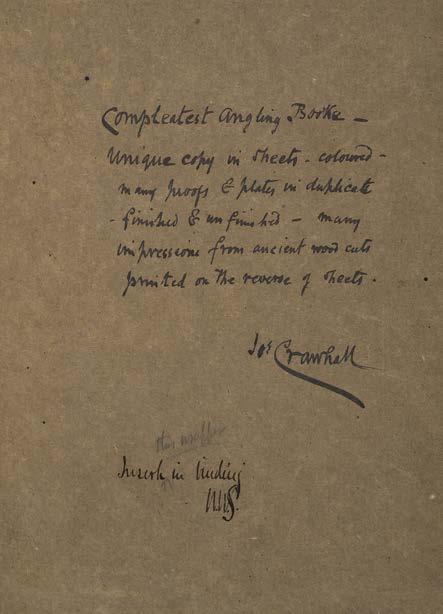 Compleatest Angling Booke –
Unique copy in sheets - coloured -
many proofs & plates in duplicate
- finished & unfinished – many
impressions from ancient wood cuts
printed on the reverse of sheets.
Jos Crawhall
this
in binding